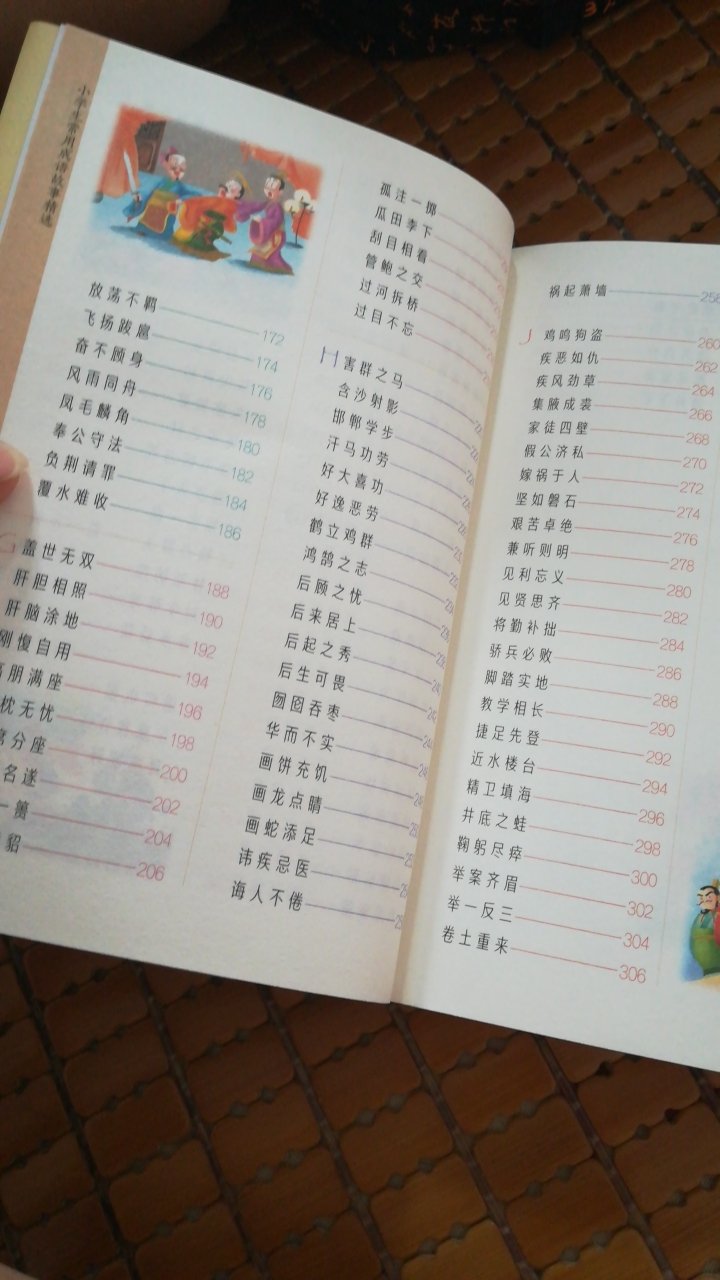 小学生常用成语故事精选
放荡不羁 172
飞扬跋扈 174
奋不顾身 176
风雨同舟 178
凤毛麟角 180
奉公守法 182
负荆请罪 184
覆水难收 186
G
盖世无双 188
肝胆相照 190
肝脑涂地 192
刚愎自用 194
朋满座 196
枕无忧 198
分座 200
名遂 202
一篑 204
貂 206
孤注一掷
瓜田李下
刮目相看
管鲍之交
过河拆桥
过目不忘
H
害群之马
含沙射影
邯郸学步
汗马功劳
好大喜功
好逸恶劳
鹤立鸡群
鸿鹄之志
后顾之忧
后来居上
后起之秀
后生可畏
囫囵吞枣
华而不实
画饼充饥
画龙点睛
画蛇添足
讳疾忌医
诲人不倦
祸起萧墙 258
J
鸡鸣狗盗 260
疾恶如仇 262
疾风劲草 264
集腋成裘 266
家徒四壁 268
假公济私 270
嫁祸于人 272
坚如磐石 274
艰苦卓绝 276
兼听则明 278
见利忘义 280
见贤思齐 282
将勤补拙 284
骄兵必败 286
脚踏实地 288
教学相长 290
捷足先登 292
近水楼台 294
精卫填海 296
井底之蛙 298
鞠躬尽瘁 300
举案齐眉 302
举一反三 304
卷土重来 306